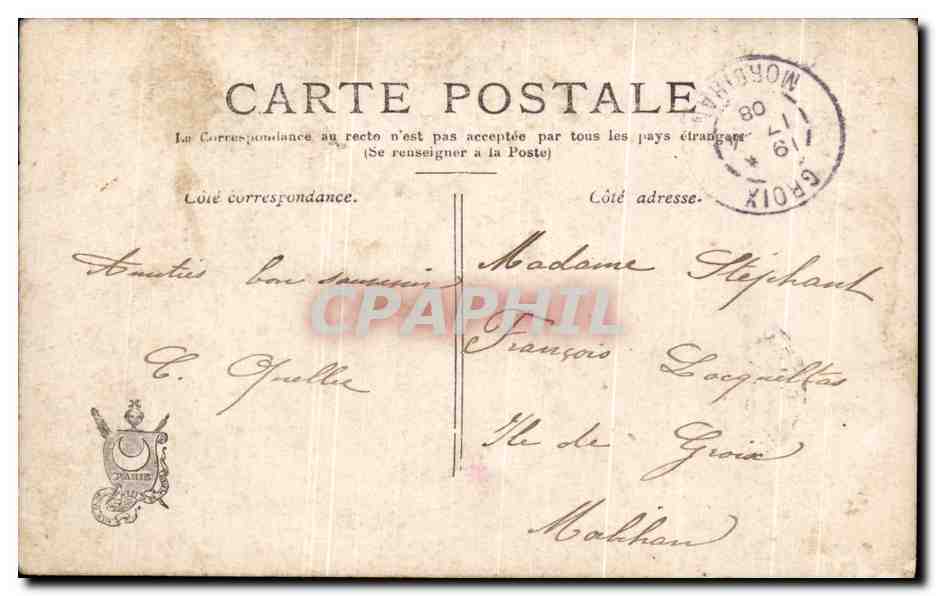 CARTE POSTALE
La Correspondance au recto n'est pas acceptée par tous les pays étrangers
(Se renseigner a la Poste)
Côté correspondance.
Côté adresse.
Amitiés bon souvenir
Madame Stéphant
François Locqueltas
Ile de Groix
Mobihan
C. Quellec
CPAPHIL
GROIX
MORBIHAN
19
17
08
PARIS